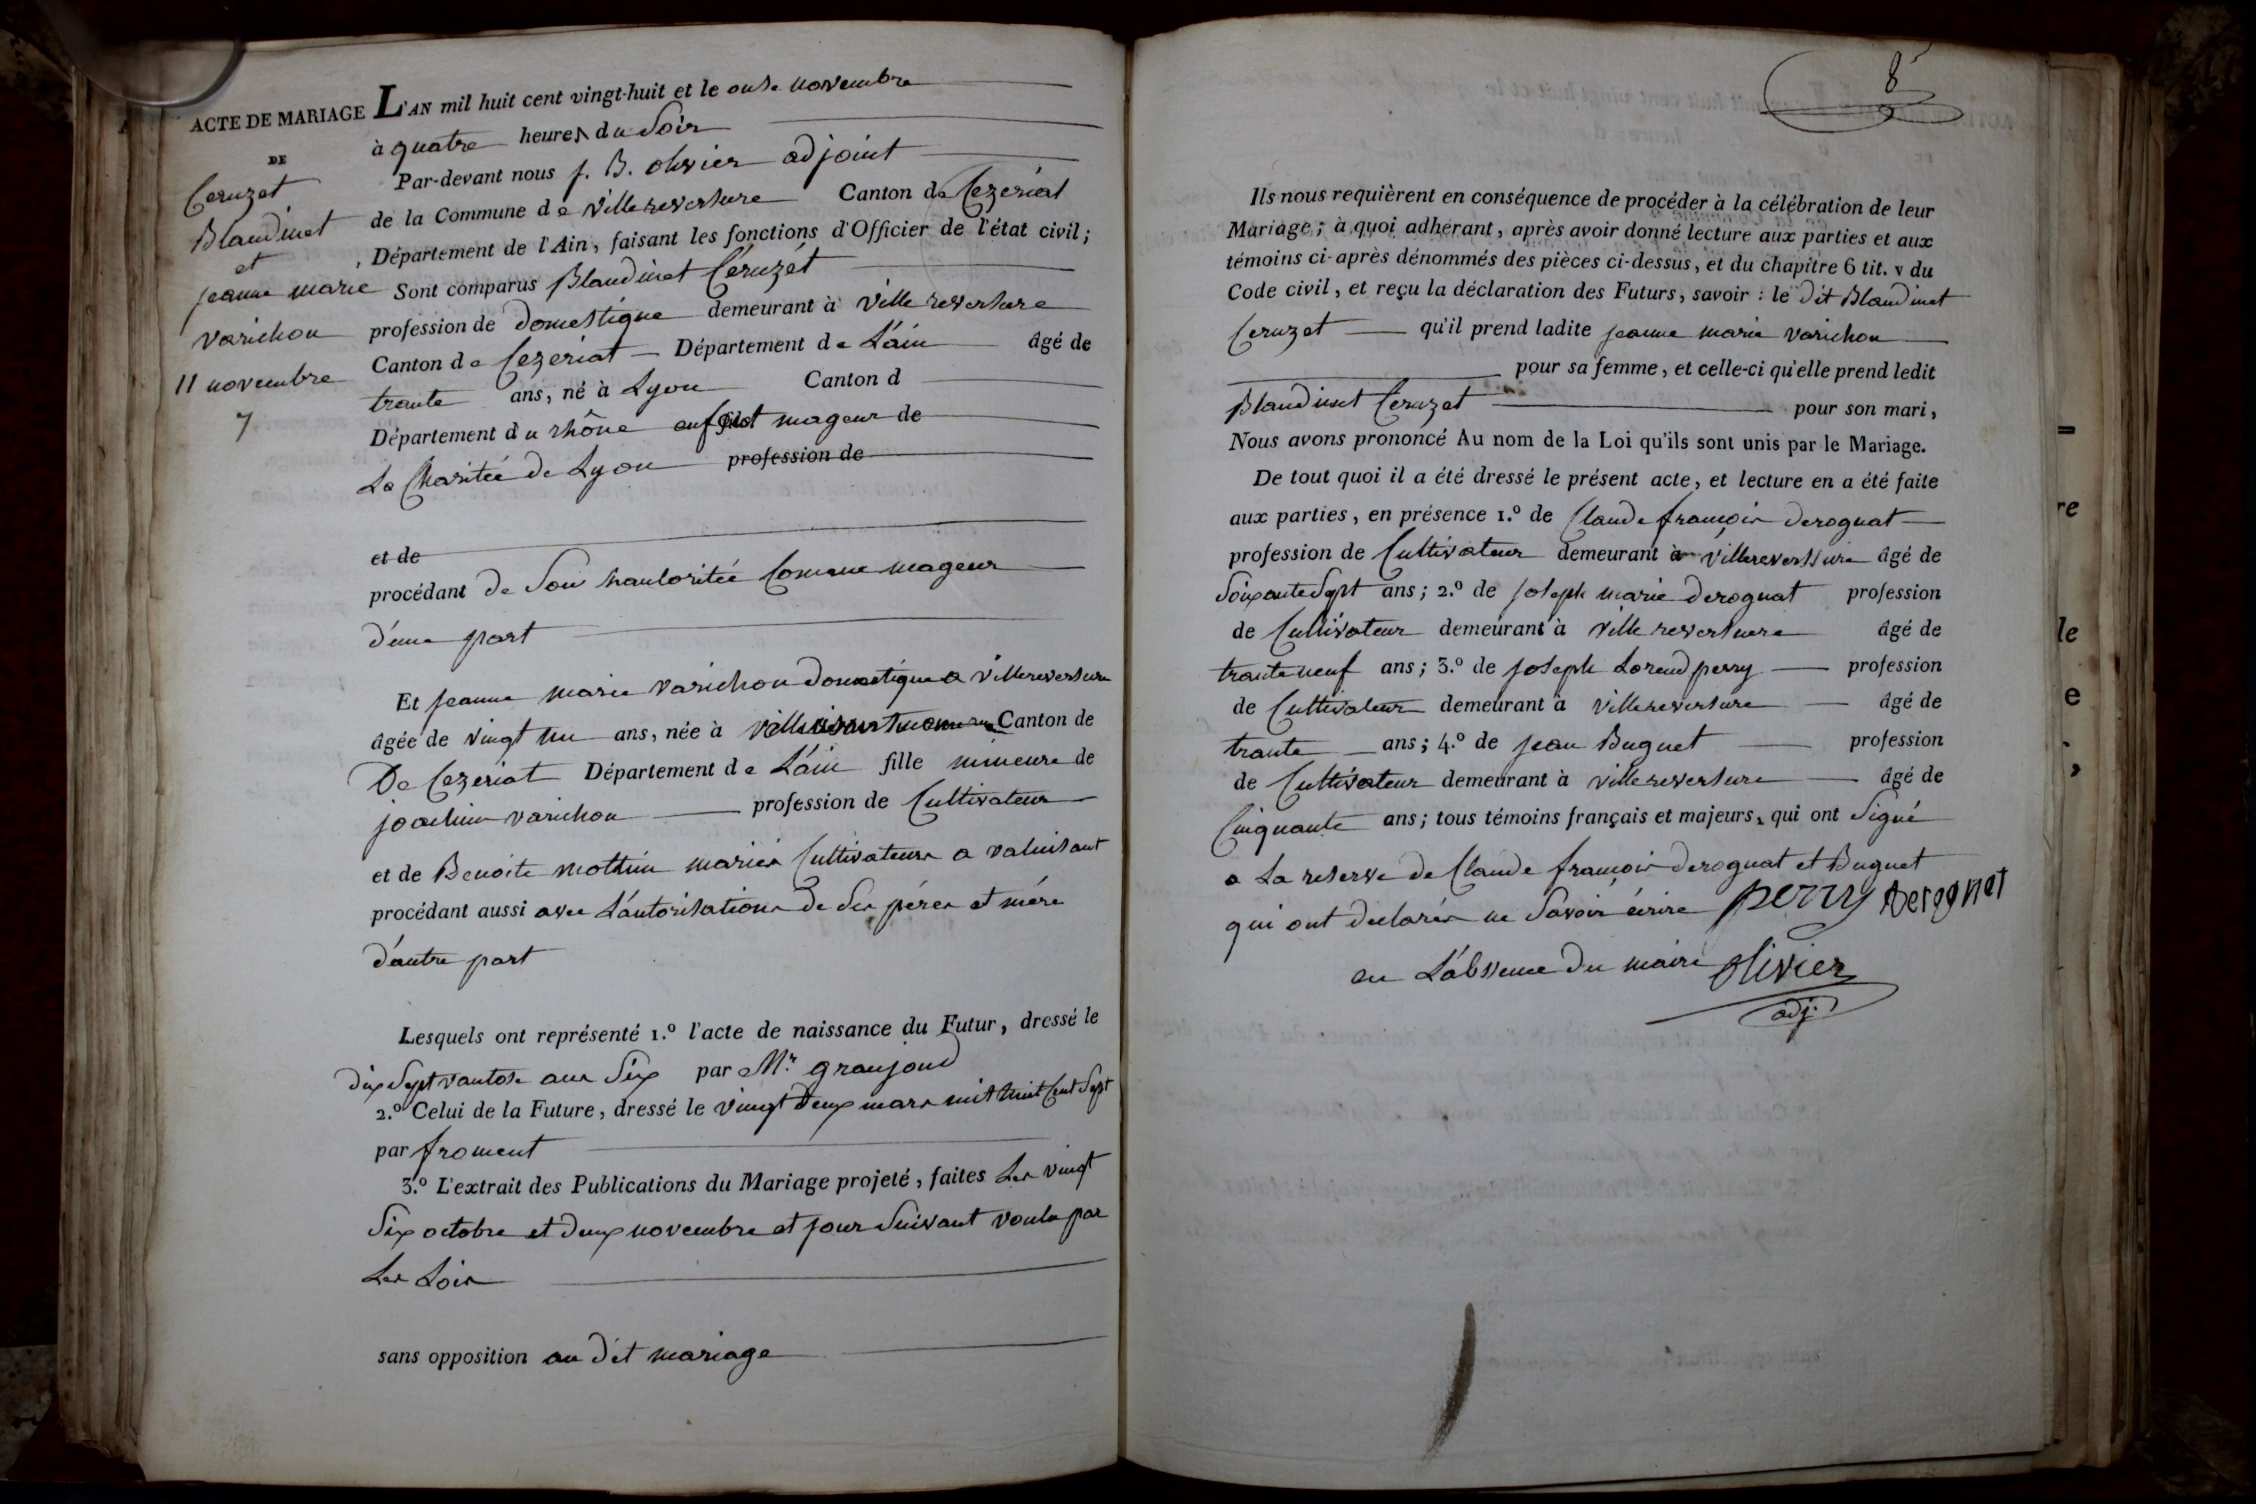 ACTE DE MARIAGE
DE
Ceruzet
Blandinet
et
jeanne marie
varichon
11 novembre
7
L'AN mil huit cent vingt-huit et le onse novembre
à quatre heures du Soir
Par-devant nous j. B. olivier adjoint
de la Commune de villereversure Canton de Cezeriat
, Département de l'Ain, faisant les fonctions d'Officier de l'état civil;
Sont comparus Blandinet Céruzét
profession de domestique demeurant à ville reversure
Canton de Cezeriat Département de L'ain âgé de
trante ans, né à Lyon Canton d
Département du rhône enfant mageur de
La Charitée de Lyon profession de
et de
procédant de Son hautoritée Comme mageur
d'une part
Et jeanne marie varichon domestique a villereversure
âgée de vingt un ans, née à Canton de
De Cezeriat Département de L'ain fille mineure de
joachim varichon profession de Cultivateur
et de Benoite mottin mariés Cultivateurs a valuisant
procédant aussi avec L'autorisations de Ses pérés et mére
d'autre part
Lesquels ont représenté 1.º l'acte de naissance du Futur, dressé le
dix Sept vantose an Six par Mr. granjond
2.º Celui de la Future, dressé le vingt deux mars mil huit Cent Sept
par froment
3.º L'extrait des Publications du Mariage projeté, faites Les vingt
Six octobre et deux novembre et jour Suivant voulu par
Les Lois
sans opposition au dit mariage
8
Ils nous requièrent en conséquence de procéder à la célébration de leur
Mariage; à quoi adhérant, après avoir donné lecture aux parties et aux
témoins ci-après dénommés des pièces ci-dessus, et du chapitre 6 tit. v du
Code civil, et reçu la déclaration des Futurs, savoir : le dit Blandinet
Ceruzet qu'il prend ladite jeanne marie varichon
pour sa femme, et celle-ci qu'elle prend ledit
Blandinet Ceruzet pour son mari,
Nous avons prononcé Au nom de la Loi qu'ils sont unis par le Mariage.
De tout quoi il a été dressé le présent acte, et lecture en a été faite
aux parties, en présence 1.º de Claude françois derognat
profession de Cultivateur demeurant à villereverssure âgé de
Soixante Sept ans; 2.º de joseph marie derognat profession
de Cultivateur demeurant à ville reversure âgé de
trante neuf ans; 3.º de joseph Lorend perry profession
de Cultivateur demeurant à villereversure âgé de
trante ans; 4.º de jean Buguet profession
de Cultivateur demeurant à villereversure âgé de
Cinquante ans; tous témoins français et majeurs, qui ont Signé
a La reserve de Claude françois derognat et Buguet
qui ont declarés ne Savoir écrire perry Derognat
en L'absence du maire olivier
adj.